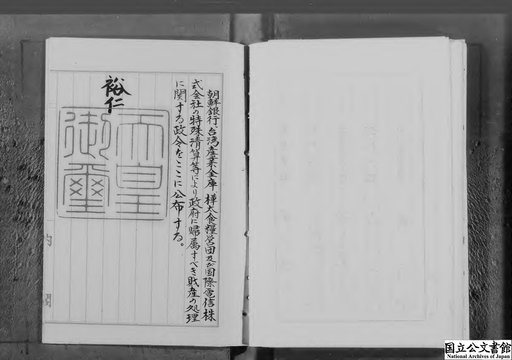 朝鮮銀行、台湾産業金庫、樺太食糧営団及び国際電信株
式会社の特殊清算等により政府に帰属すべき財産の処理
に関する政令をここに公布する。
裕仁
天皇
御璽
内閣
国立公文書館
National Archives of Japan